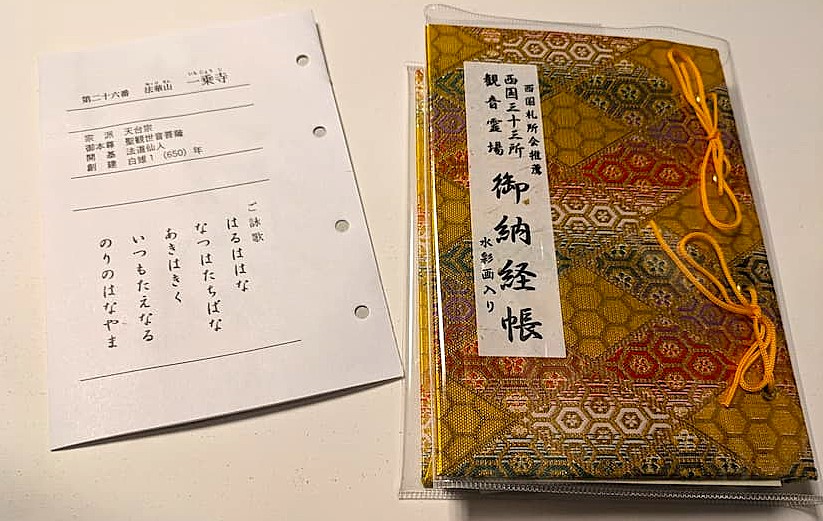 第二十六番 法華山 一乗寺
宗 派 天台宗
御本尊 聖観世音菩薩
開 基 法道仙人
創 建 白雉1(650)年
ご詠歌
はるははな
なつはたちばな
あきはきく
いつもたえなる
のりのはなやま
西国札所会推薦
西国三十三所
観音霊場
御納経帳
水彩画入り